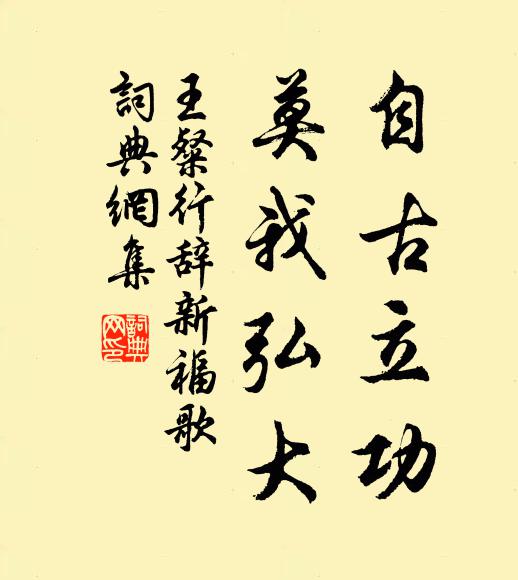 自古立功
莫我弘大
王粲行辞新福歌
詞典網集
詞典网印